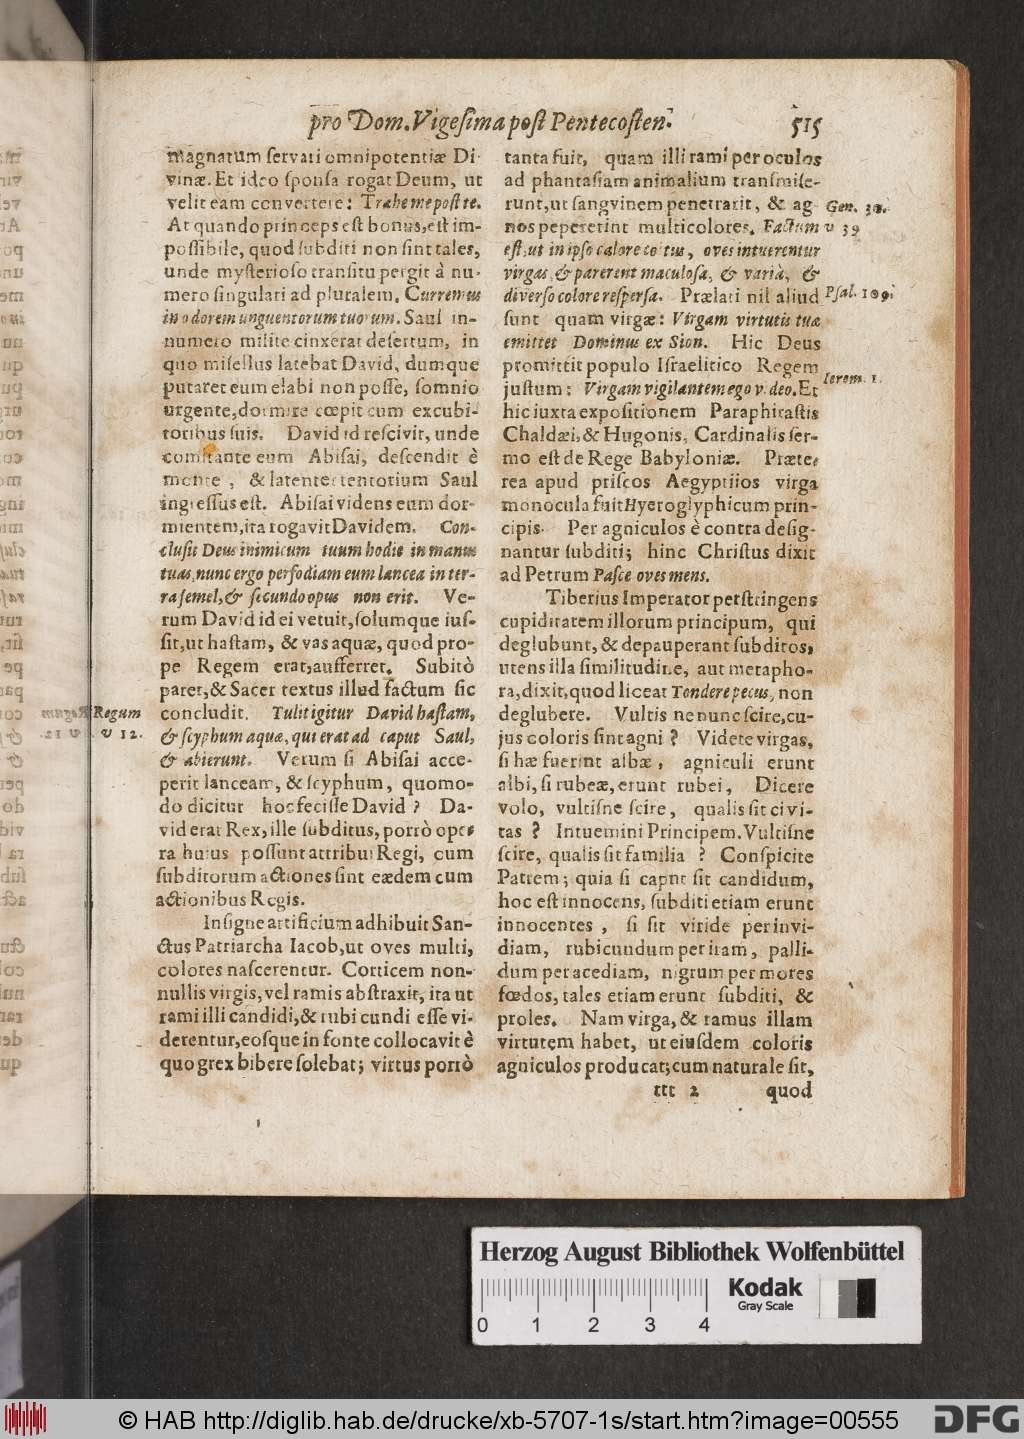 pro Dom. Vigesima post Pentecosten. 515
magnatum servati omnipotentiæ Di-
vinæ. Et ideo sponsa rogat Deum, ut
velit eam convertere: Trahe me post te.
At quando princeps est bonus, est im-
possibile, quod subditi non sint tales,
unde mysterioso transitu pergit à nu-
mero singulari ad pluralem. Curremus
in odorem unguentorum tuorum. Saul in-
numero milite cinxerat desertum, in
quo misellus latebat David, dumque
putaret eum elabi non posse, somno
urgente, dormire cœpit cum excubi-
toribus suis. David id rescivit, unde
comitante eum Abisai, descendit è
monte, & latenter tentorium Saul
ingressus est. Abisai videns eum dor-
mientem, ita rogavit Davidem. Con-
clusit Deus inimicum tuum hodie in manus
tuas, nunc ergo perfodiam eum lancea in ter-
ra semel, & secundo opus non erit. Ve-
rum David id ei vetuit, solumque jus-
sit, ut hastam, & vas aquæ, quod pro-
pe Regem erat, aufferret. Subitò
paret, & Sacer textus illud factum sic
concludit. Tulit igitur David hastam,
& scyphum aquæ, qui erat ad caput Saul,
& abierunt. Verum si Abisai acce-
perit lanceam, & scyphum, quomo-
do dicitur hoc fecisse David? Da-
vid erat Rex, ille subditus, porrò ope-
ra hujus possunt attribui Regi, cum
subditorum actiones sint eædem cum
actionibus Regis.
Insigne artificium adhibuit San-
ctus Patriarcha Iacob, ut oves multi,
colores nascerentur. Corticem non-
nullis virgis, vel ramis abstraxit, ita ut
rami illi candidi, & rubicundi esse vi-
derentur, eosque in fonte collocavit è
quo grex bibere solebat; virtus porrò
Regum
v 12.
tanta fuit, quam illi rami per oculos
ad phantasiam animalium transmise-
runt, ut sangvinem penetrarit, & ag-
nos pepererint multicolores. Factum
est, ut in ipso calore coitus, oves intuerentur
virgas, & parerent maculosa, & varia, &
diverso colore respersa. Prælati nil aliud
sunt quam virgæ: Virgam virtutis tuæ
emittet Dominus ex Sion. Hic Deus
promittit populo Israelitico Regem
justum: Virgam vigilantem ego video. Et
hic iuxta expositionem Paraphrastis
Chaldæi, & Hugonis, Cardinalis ser-
mo est de Rege Babyloniæ. Præte-
rea apud priscos Aegyptiios virga
monocula fuit Hyeroglyphicum prin-
cipis. Per agniculos è contra desig-
nantur subditi; hinc Christus dixit
ad Petrum Pasce oves mens.
Tiberius Imperator perstringens
cupiditatem illorum principum, qui
deglubunt, & depauperant subditos,
utens illa similitudine, aut metapho-
ra, dixit, quod liceat Tondere pecus, non
deglubere. Vultis ne nunc scire, cu-
jus coloris sint agni? Videte virgas,
si hæ fuerint albæ, agniculi erunt
albi, si rubeæ, erunt rubei, Dicere
volo, vultisne scire, qualis sit civi-
tas? Intuemini Principem. Vultisne
scire, qualis sit familia? Conspicite
Patrem; quia si caput sit candidum,
hoc est innocens, subditi etiam erunt
innocentes, si sit viride per invi-
diam, rubicundum per iram, palli-
dum per acediam, nigrum per mores
fœdos, tales etiam erunt subditi, &
proles. Nam virga, & ramus illam
virtutem habet, ut eiusdem coloris
agniculos producat; cum naturale sit,
ttt 2 quod
Gen. 30.
v 39
Psal. 109.
Ierem. 1.
Herzog August Bibliothek Wolfenbüttel
0 1 2 3 4
Kodak
Gray Scale
© HAB http://diglib.hab.de/drucke/xb-5707-1s/start.htm?image=00555
DFG